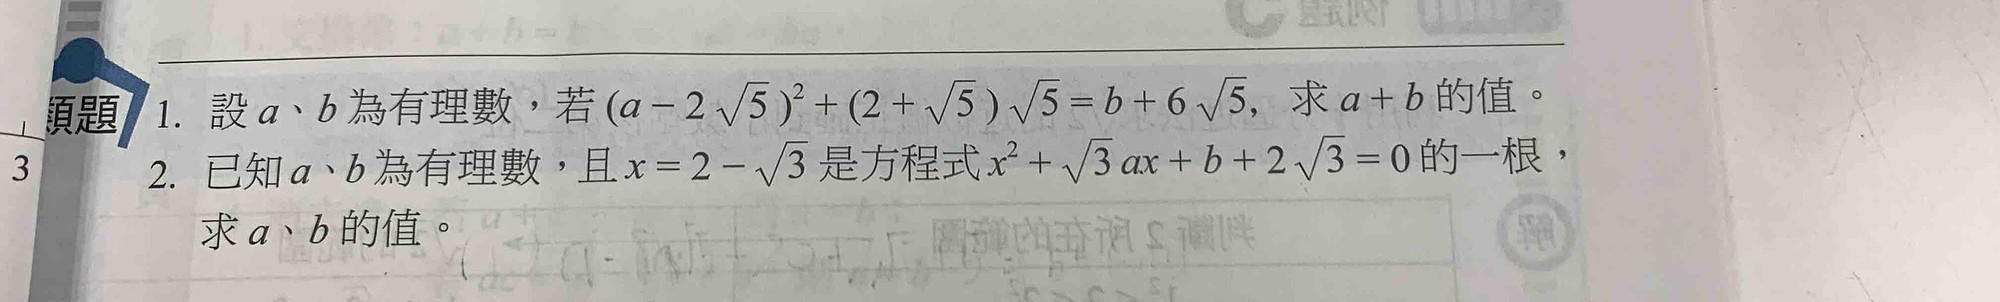 類題
1. 設 a、b 為有理數，若 (a − 2√5)² + (2 + √5)√5 = b + 6√5, 求 a + b 的值。
3
2. 已知 a、b 為有理數，且 x = 2 − √3 是方程式 x² + √3 ax + b + 2√3 = 0 的一根，
求 a、b 的值。